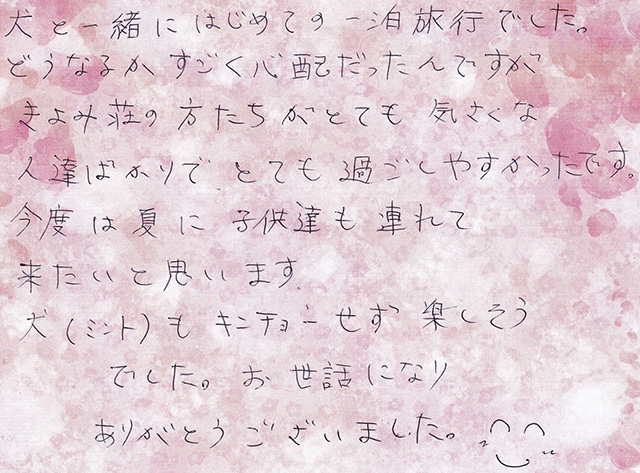 犬と一緒にはじめての一泊旅行でした。
どうなるかすごく心配だったんですが
きよみ荘の方たちがとても気さくな
人達ばかりで とても過ごしやすかったです。
今度は夏に子供達も連れて
来たいと思います
犬(ミント)もキンチョーせず楽しそう
でした。お世話になり
ありがとうございました。